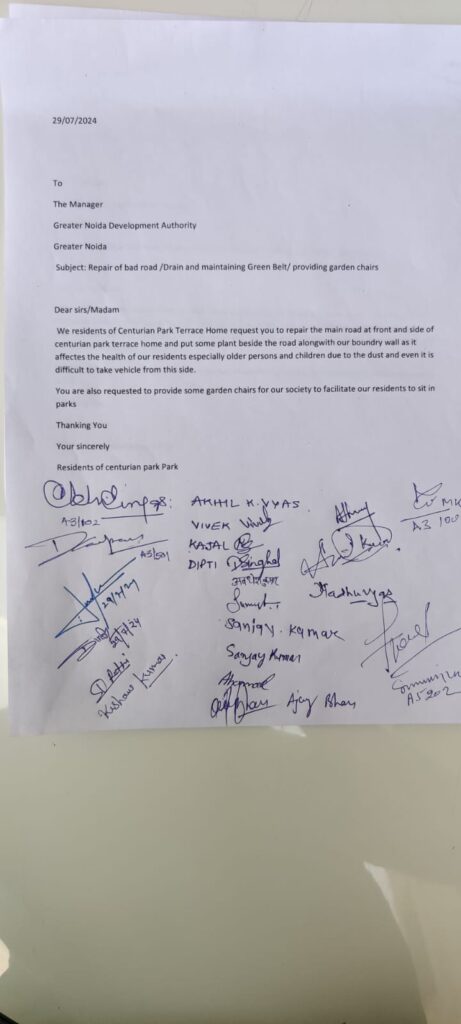 29/07/2024
To
The Manager
Greater Noida Development Authority
Greater Noida
Subject: Repair of bad road /Drain and maintaining Green Belt/ providing garden chairs
Dear sirs/Madam
We residents of Centurian Park Terrace Home request you to repair the main road at front and side of
centurian park terrace home and put some plant beside the road alongwith our boundry wall as it
affectes the health of our residents especially older persons and children due to the dust and even it is
difficult to take vehicle from this side.
You are also requested to provide some garden chairs for our society to facilitate our residents to sit in
parks
Thanking You
Your sincerely
Residents of centurian park Park
AKHIL K. VYAS
A3/102
VIVEK
A3/501
KAJAL
DIPTI Dsinghal
29/7/24
Sumit
Madhuvyas
29/7/24
Sanjay. Kumar
Sanjay Kumar
Rathi
Kishawr Kumar
Ajay Bhan
A5202